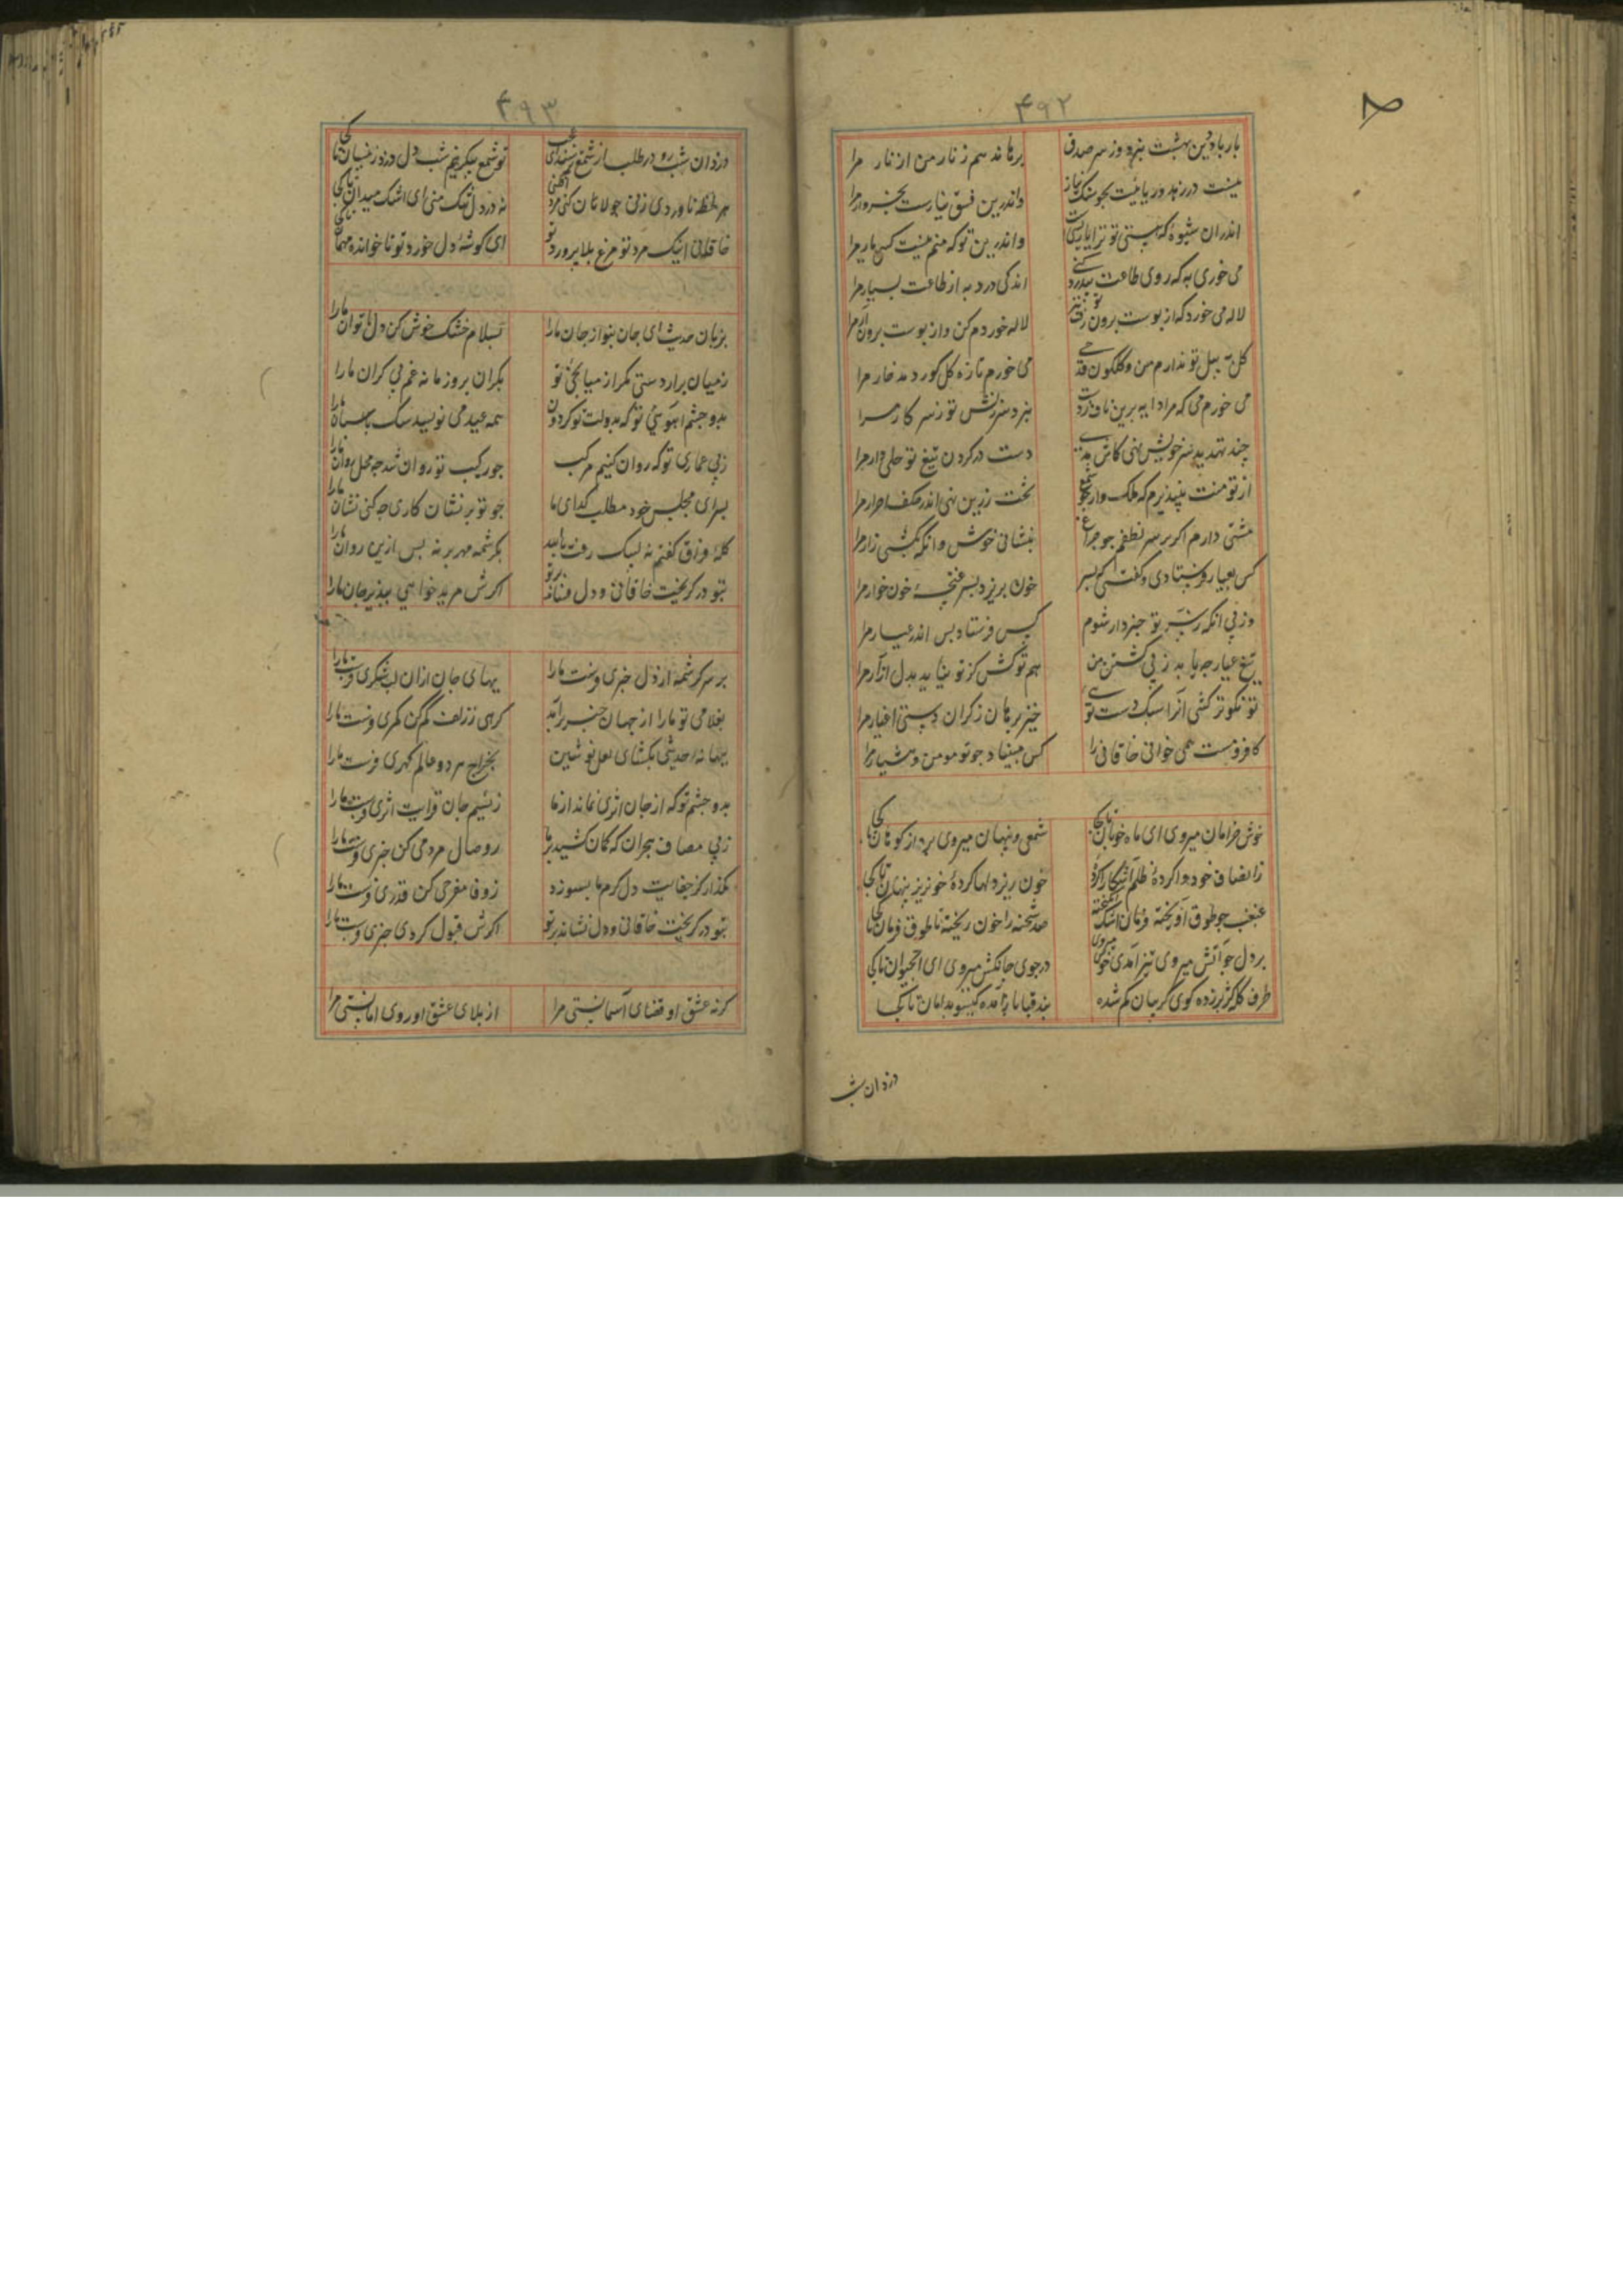 ۴۹۲
بار بادین بهشت نبرد وز سر صدق
برهاند هم زنار من از نار مرا
نیست در زهد ریائیت بجو سنگ نیاز
واندرین فسق نیازست بخروار مرا
اندران شیوه که هستی تو ترا یار بسیست
واندرین توکه منم نیست کسی یار مرا
می خوری به که روی طاعت بیدرد کنی
اندکی درد به از طاعت بسیار مرا
لاله می خورد که از پوست برون رفت
لاله خوردم کن واز پوست برون آر مرا
گل به پیل تو ندارم من وگلگون قدحی
می خورم تازه گل کو ر دمد خار مرا
می خورم می که مرا دایه برین ناف زدست
نبرد سرزنش تو ز سر کار مرا
چند تهدید سر خویش نهی کاش بدی
دست در گردن تیغ تو حلی وار مرا
از تو منت بپذیرم که ملک وار چو شمع
تخت زرین نهی اندر صف احرار مرا
منتی دارم اگر بر سر نطعم چو چراغ
بنشانی خوش وانگه بکشی زار مرا
کس بعیار فرستادی و گفتی که بسر
خون بریزد بسر خنجر خون خوار مرا
وز پی آنکه ز سر تو خبردار شوم
کس فرستاد بس اندر عیار مرا
تیغ عیار چه باید ز پی کشتن من
هم تو کش کز تو نیاید بدل آزار مرا
تو نکوتر کشی ایرا سبک دست تری
خیز برهان ز گران دستی اغیار مرا
کافر و مست همی خوانی خاقانی را
کس مبیناد چو تو مومن و هشیار مرا
خوش خرامان میروی ای ماه خوبان تا کجا
شمعی و پنهان میروی پروانه کویان تا کجا
ز انصاف خود وا کردهٔ ظلم آشکارا کردهٔ
خون ریز دلها کردهٔ خونریز پنهان تا کجا
غبغب چو طوق آویخته فرمان ز مشک انگیخته
صد شحنه را خون ریخته با طوق و فرمان تا کجا
بر دل چو آتش میروی تیز آمدی خوش میروی
در جوی جانکش میروی ای آب حیوان تا کجا
طرف کله کژ بر زده کوی گریبان کم شده
بند قبا بازآمده گیسو بدامان تا کجا
دزدان شب
۴۹۳
دزدان شب رو در طلب از شمع ترسند ای عجب
تو شمع پیکر نیم شب دل دزدی زینسان تا کجا
هر لحظه ناوردی زنی جولان کنی مرد افکنی
نه در دل تنگ منی ای اشک میدان تا کجا
خاقانی اینک مرد تو مرغ بلاپرورد تو
ای گوشهٔ دل خورد تو ناخوانده مهمان تا کجا
بزبان حدیث ای جان بنواز جان ما را
بسلام خشک خوش کن دل ناتوان ما را
ز میان برار دستی مگر از میانجی تو
بکران برد زمانه غم بی کران ما را
بدو چشم آهوی تو که بدولت تو گردون
همه عبده می نویسد سگ پاسبان ما را
ز پی عماری تو که روان کنیم مرکب
چو رکیب تو روان شد چه محل روان ما را
بسرای مجلس خود مطلب گدای ما
چو تو بر نشان کاری چه کنی نشان ما را
گلهٔ فراق گفتم نه لیک رفت باید
بکرشمه مهر برنه پس ازین روان ما را
بتو در گریخت خاقانی و دل فشاند بر تو
اگرش مرید خواهی بپذیر جان ما را
بر سر کرشمه از دل خبری فرست ما را
ببهای جان ازان لب شکری فرست ما را
بغلامی تو ما را از جهان خبر برآمد
گرهی ز زلف کم کن کمری فرست ما را
ببهانه حدیثی بگشای لعل نوشین
بخراج هر دو عالم گهری فرست ما را
بدو چشم تو که از جان اثری نماند از ما
ز نسیم جان فزایت اثری فرست ما را
ز پی مصاف هجران که کمان کشید بر ما
ز وصال مردمی کن خبری فرست ما را
بگذار کز جفایت دل گرم ما بسوزد
ز وفا مفرحی کن قدری فرست ما را
بتو در گریخت خاقانی و دل نشاند بر تو
اگرش قبول کردی خبری فرست ما را
گر نه عشق او قضای آسمانستی مرا
از بلای عشق او روی امانستی مرا